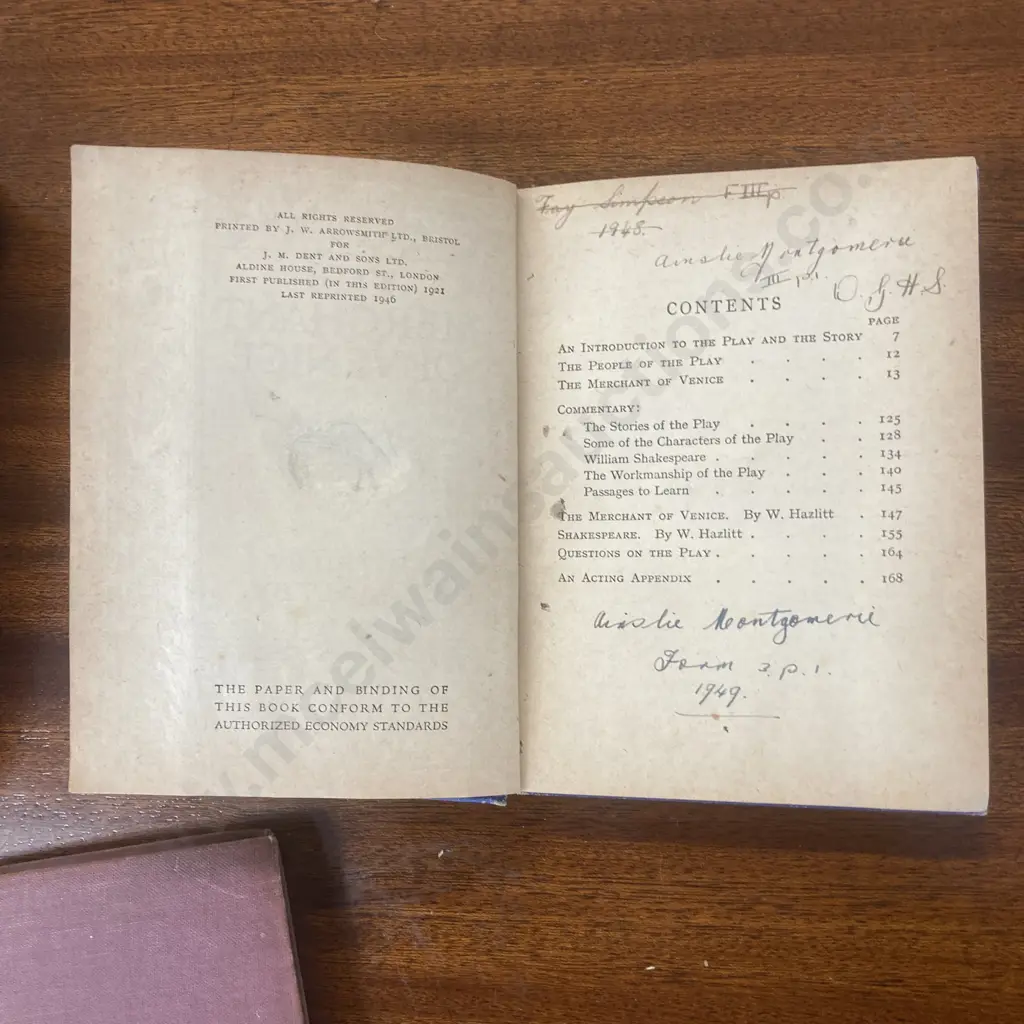 ALL RIGHTS RESERVED
PRINTED BY J. W. ARROWSMITH LTD., BRISTOL
FOR
J. M. DENT AND SONS LTD.
ALDINE HOUSE, BEDFORD ST., LONDON
FIRST PUBLISHED (IN THIS EDITION) 1921
LAST REPRINTED 1946
THE PAPER AND BINDING OF
THIS BOOK CONFORM TO THE
AUTHORIZED ECONOMY STANDARDS
Fay Simpson F III p
1948.
Ainslie Montgomerie
III p.1. O. G. H. S.
CONTENTS
PAGE
AN INTRODUCTION TO THE PLAY AND THE STORY 7
THE PEOPLE OF THE PLAY . . . . 12
THE MERCHANT OF VENICE . . . . 13
COMMENTARY:
The Stories of the Play . . . . 125
Some of the Characters of the Play . . 128
William Shakespeare . . . . . 134
The Workmanship of the Play . . . 140
Passages to Learn . . . . . 145
THE MERCHANT OF VENICE. By W. HAZLITT . 147
SHAKESPEARE. By W. HAZLITT . . . . 155
QUESTIONS ON THE PLAY . . . . . 164
AN ACTING APPENDIX . . . . . 168
Ainslie Montgomerie
Form 3. p. 1.
1949.